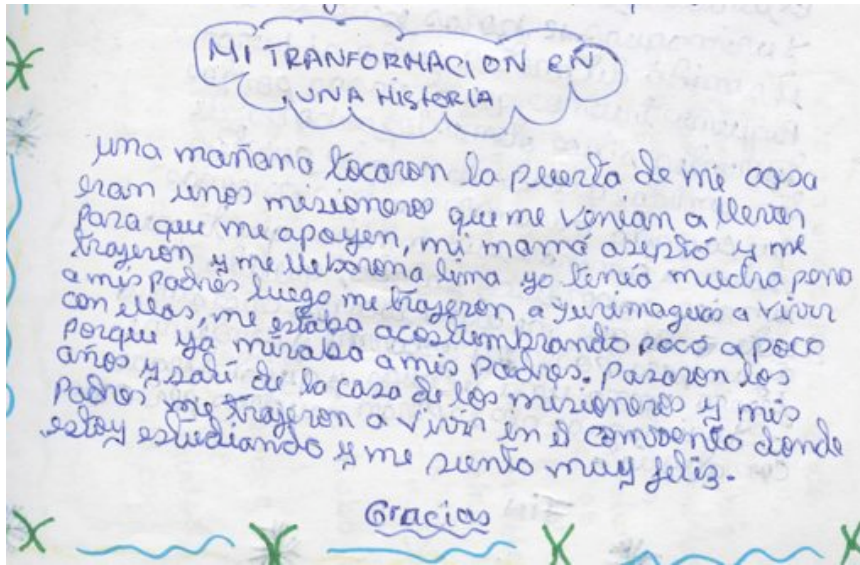 MI TRANFORMACION EN
UNA HISTORIA
una mañana tocaron la puerta de me casa
eran unos misioneros que me venian a llevar
para que me apoyen, mi mamá aseptó y me
trajeron y me lleborona lima yo tenia mucha pena
a mis padres luego me trajeron a yurimaguas a vivir
con ellos, me estaba acostumbrando poco a poco
porque ya miraba a mis padres. Pasaron los
años y salí de la casa de los misioneros y mis
Padres me trajeron a vivir en el convento donde
estoy estudiando y me siento muy feliz.
Gracias